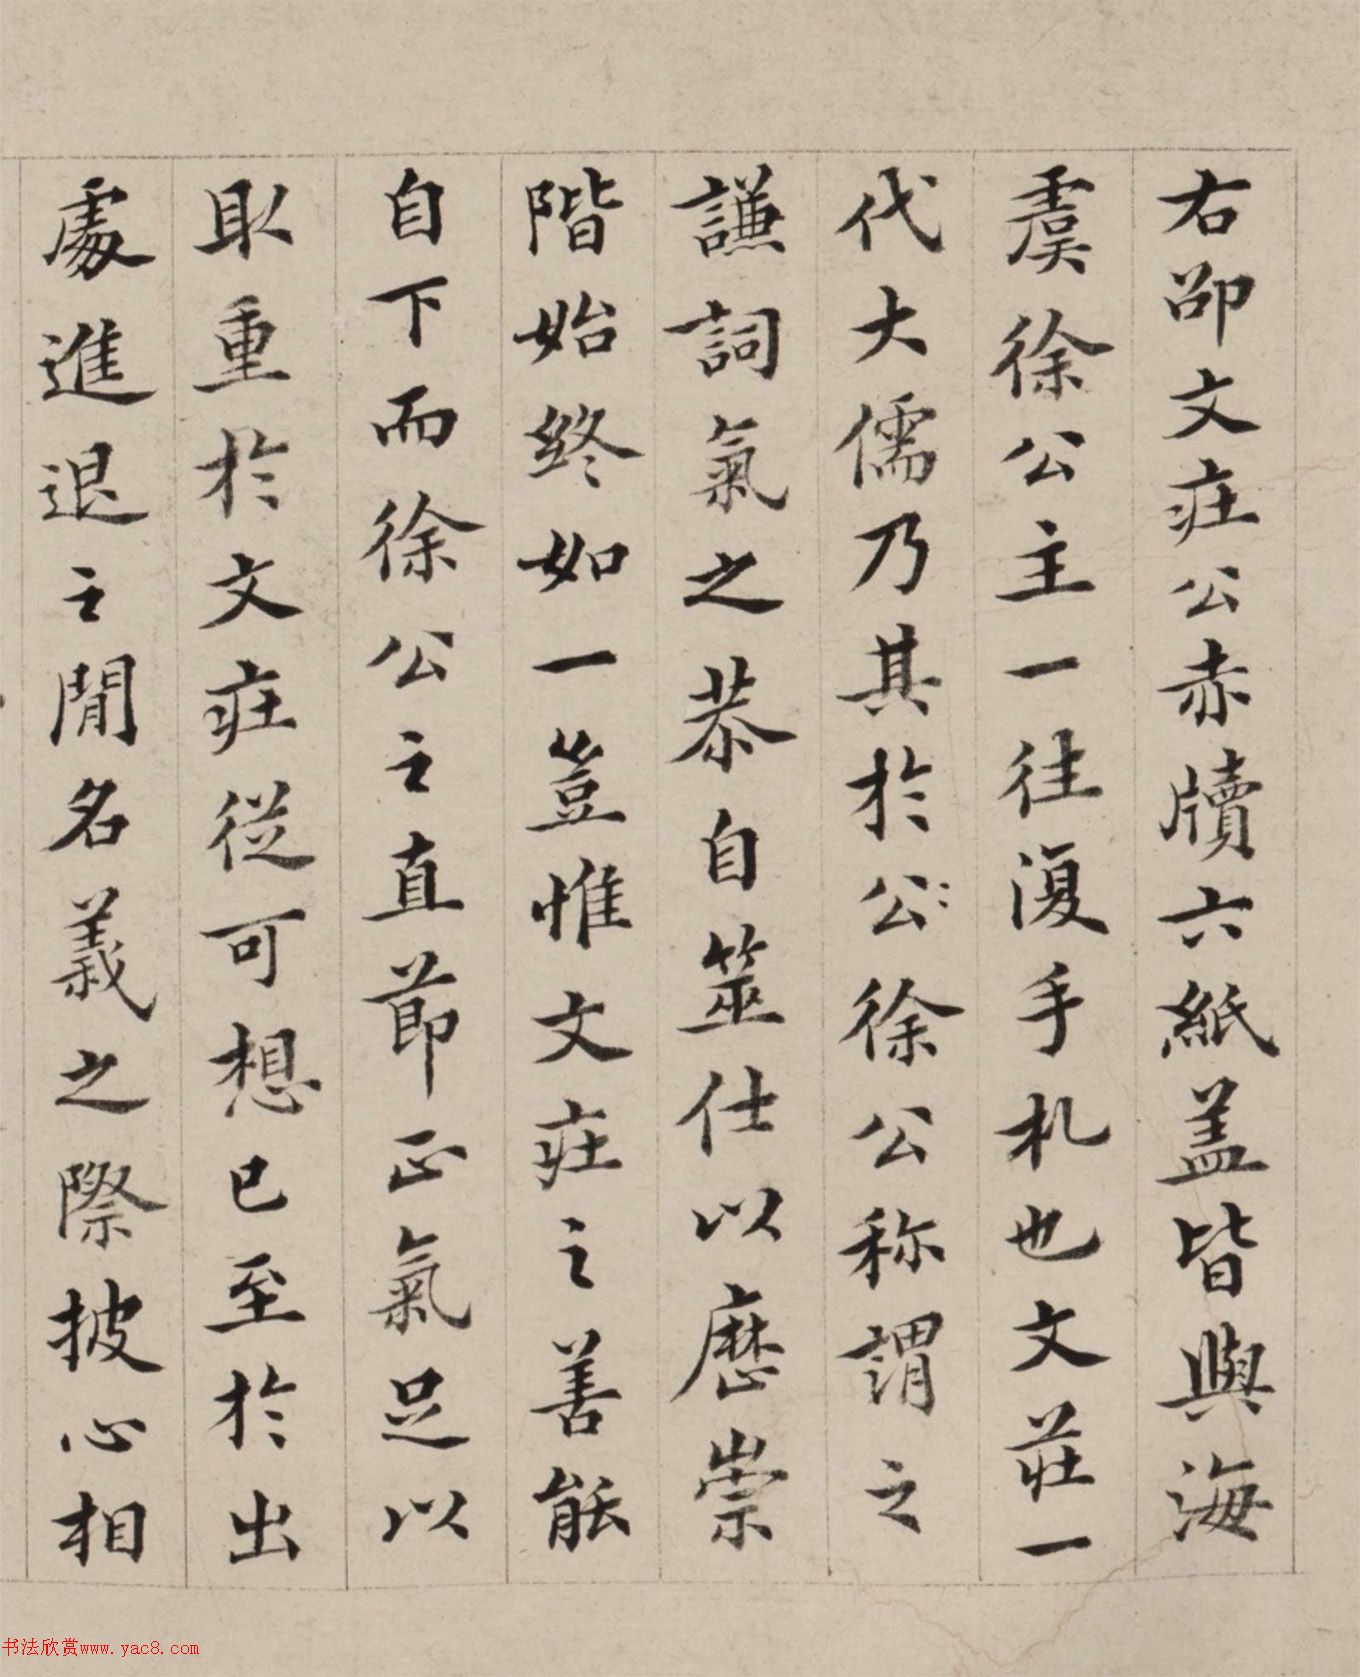 右邵文莊公赤牘六紙蓋皆與海
虞徐公主一往復手札也文莊一
代大儒乃其於公〻徐公称謂之
謙詞氣之恭自筮仕以歷崇
階始終如一豈惟文莊之善能
自下而徐公之直節正氣足以
取重於文莊從可想已至於出
處進退之間名義之際披心相
书法欣赏www.yac8.com